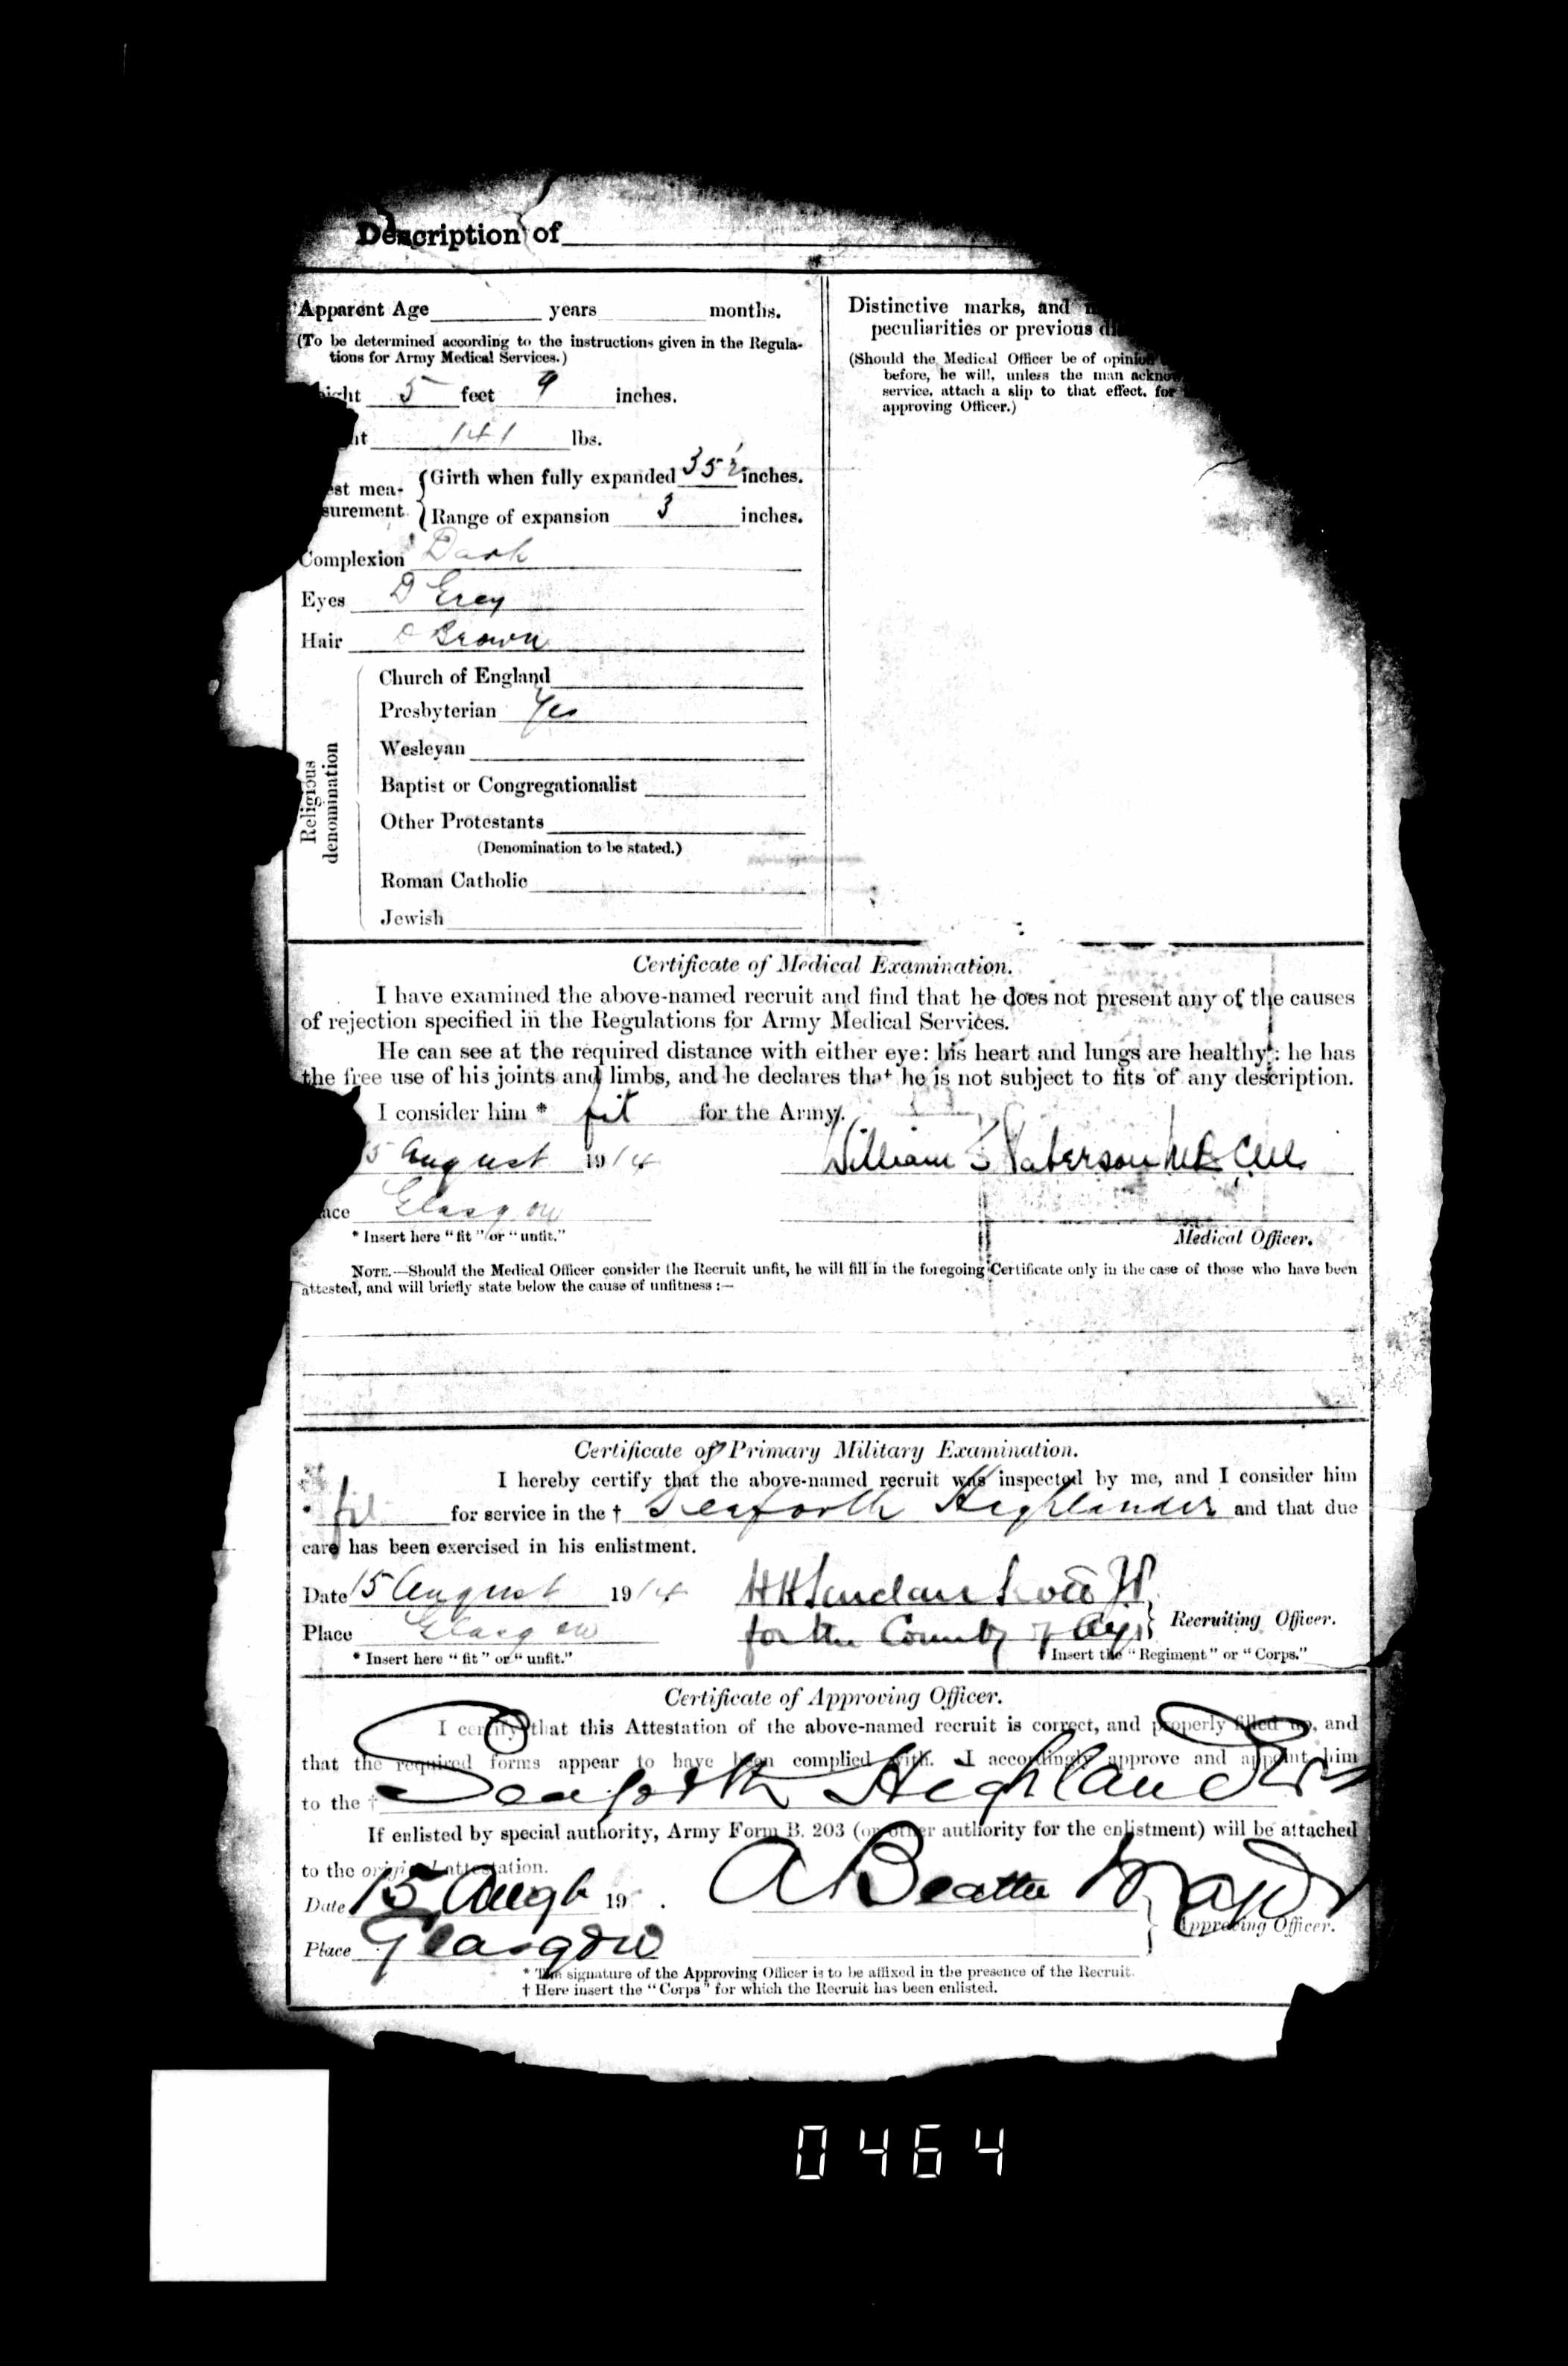 Description of
Apparent Age years months.
(To be determined according to the instructions given in the Regula-
tions for Army Medical Services.)
5 feet 9 inches.
141 lbs.
Girth when fully expanded 35½ inches.
mea-
surement
Range of expansion 3 inches.
Complexion Dark
Eyes D Grey
Hair D Brown
Religious denomination
Church of England
Presbyterian Yes
Wesleyan
Baptist or Congregationalist
Other Protestants
(Denomination to be stated.)
Roman Catholic
Jewish
Distinctive marks, and
peculiarities or previous
(Should the Medical Officer be of opinion
before, he will, unless the man
service, attach a slip to that effect, for
approving Officer.)
Certificate of Medical Examination.
I have examined the above-named recruit and find that he does not present any of the causes
of rejection specified in the Regulations for Army Medical Services.
He can see at the required distance with either eye: his heart and lungs are healthy: he has
the free use of his joints and limbs, and he declares that he is not subject to fits of any description.
I consider him * fit for the Army.
5 August 1914 William Paterson
Glasgow
* Insert here "fit" or "unfit."
Medical Officer.
NOTE.—Should the Medical Officer consider the Recruit unfit, he will fill in the foregoing Certificate only in the case of those who have been
attested, and will briefly state below the cause of unfitness:—
Certificate of Primary Military Examination.
I hereby certify that the above-named recruit was inspected by me, and I consider him
* fit for service in the † Seaforth Highlanders and that due
care has been exercised in his enlistment.
Date 15 August 1914
Place Glasgow for the County of Ayr Recruiting Officer.
* Insert here "fit" or "unfit." † Insert the "Regiment" or "Corps."
Certificate of Approving Officer.
I certify that this Attestation of the above-named recruit is correct, and properly filled up, and
that the required forms appear to have been complied with. I accordingly approve and appoint him
to the † Seaforth Highlanders
If enlisted by special authority, Army Form B. 203 (or other authority for the enlistment) will be attached
to the original attestation.
Date 15 Augt 19 . A Beattie Major
Approving Officer.
Place Glasgow
* The signature of the Approving Officer is to be affixed in the presence of the Recruit.
† Here insert the "Corps" for which the Recruit has been enlisted.
0464